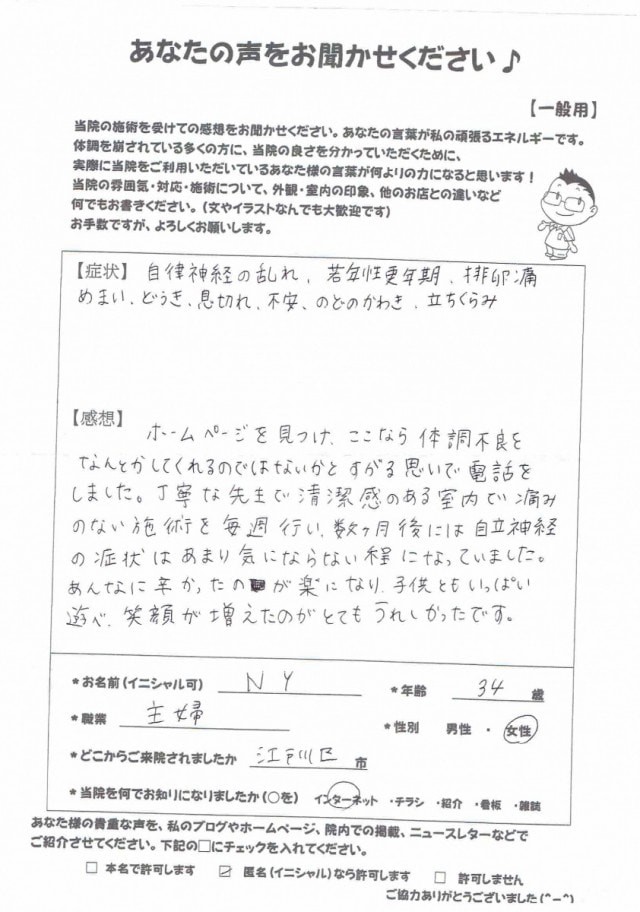 あなたの声をお聞かせください♪
【一般用】
当院の施術を受けての感想をお聞かせください。あなたの言葉が私の頑張るエネルギーです。
体調を崩されている多くの方に、当院の良さを分かっていただくために、
実際に当院をご利用いただいているあなた様の言葉が何よりの力になると思います！
当院の雰囲気・対応・施術について、外観・室内の印象、他のお店との違いなど
何でもお書きください。（文やイラストなんでも大歓迎です）
お手数ですが、よろしくお願いします。
【症状】 自律神経の乱れ、若年性更年期、排卵痛
めまい、どうき、息切れ、不安、のどのかわき、立ちくらみ
【感想】
ホームページを見つけ、ここなら体調不良を
なんとかしてくれるのではないかとすがる思いで電話を
しました。丁寧な先生で清潔感のある室内で痛み
のない施術を毎週行い、数ヶ月後には自立神経
の症状はあまり気にならない程になっていました。
あんなに辛かったのが楽になり、子供ともいっぱい
遊べ、笑顔が増えたのがとてもうれしかったです。
*お名前（イニシャル可） N Y *年齢 34 歳
*職業 主婦 *性別 男性 ・ 女性
*どこからご来院されましたか 江戸川区 市
*当院を何でお知りになりましたか（○を） インターネット ・チラシ ・紹介 ・看板 ・雑誌
あなた様の貴重な声を、私のブログやホームページ、院内での掲載、ニュースレターなどで
ご紹介させてください。下記の□にチェックを入れてください。
□ 本名で許可します ☑ 匿名（イニシャル）なら許可します □ 許可しません
ご協力ありがとうございました（^－^）